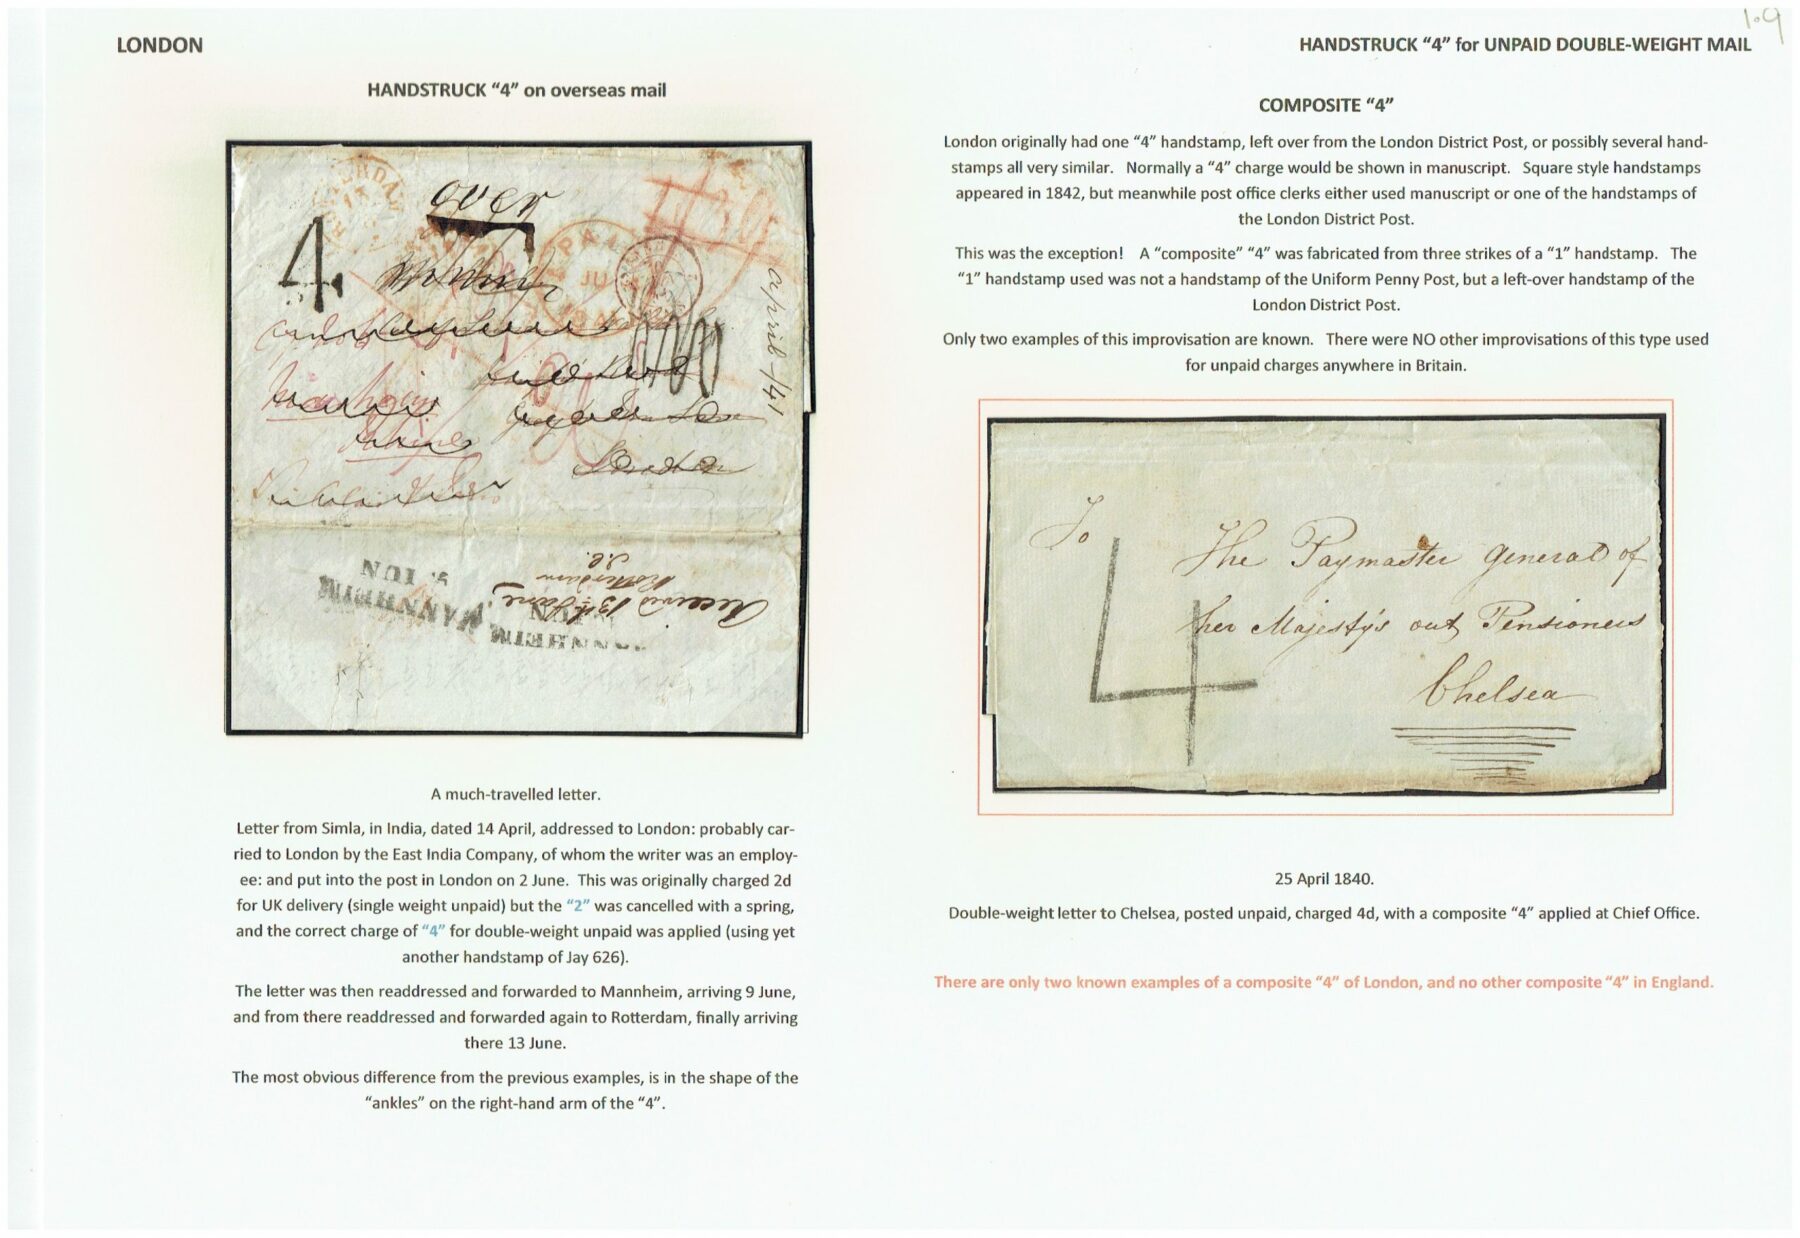 1.9
LONDON
HANDSTRUCK “4” for UNPAID DOUBLE-WEIGHT MAIL
HANDSTRUCK “4” on overseas mail
over
4
april/41
PA
JU
London
9. JUN
MANNHEIM
MANNHEIM
Received 13th June
Rotterdam
A much-travelled letter.
Letter from Simla, in India, dated 14 April, addressed to London: probably car-
ried to London by the East India Company, of whom the writer was an employ-
ee: and put into the post in London on 2 June. This was originally charged 2d
for UK delivery (single weight unpaid) but the “2” was cancelled with a spring,
and the correct charge of “4” for double-weight unpaid was applied (using yet
another handstamp of Jay 626).
The letter was then readdressed and forwarded to Mannheim, arriving 9 June,
and from there readdressed and forwarded again to Rotterdam, finally arriving
there 13 June.
The most obvious difference from the previous examples, is in the shape of the
“ankles” on the right-hand arm of the “4”.
COMPOSITE “4”
London originally had one “4” handstamp, left over from the London District Post, or possibly several hand-
stamps all very similar. Normally a “4” charge would be shown in manuscript. Square style handstamps
appeared in 1842, but meanwhile post office clerks either used manuscript or one of the handstamps of
the London District Post.
This was the exception! A “composite” “4” was fabricated from three strikes of a “1” handstamp. The
“1” handstamp used was not a handstamp of the Uniform Penny Post, but a left-over handstamp of the
London District Post.
Only two examples of this improvisation are known. There were NO other improvisations of this type used
for unpaid charges anywhere in Britain.
To
4
The Paymaster General of
her Majesty's out Pensioners
Chelsea
25 April 1840.
Double-weight letter to Chelsea, posted unpaid, charged 4d, with a composite “4” applied at Chief Office.
There are only two known examples of a composite “4” of London, and no other composite “4” in England.